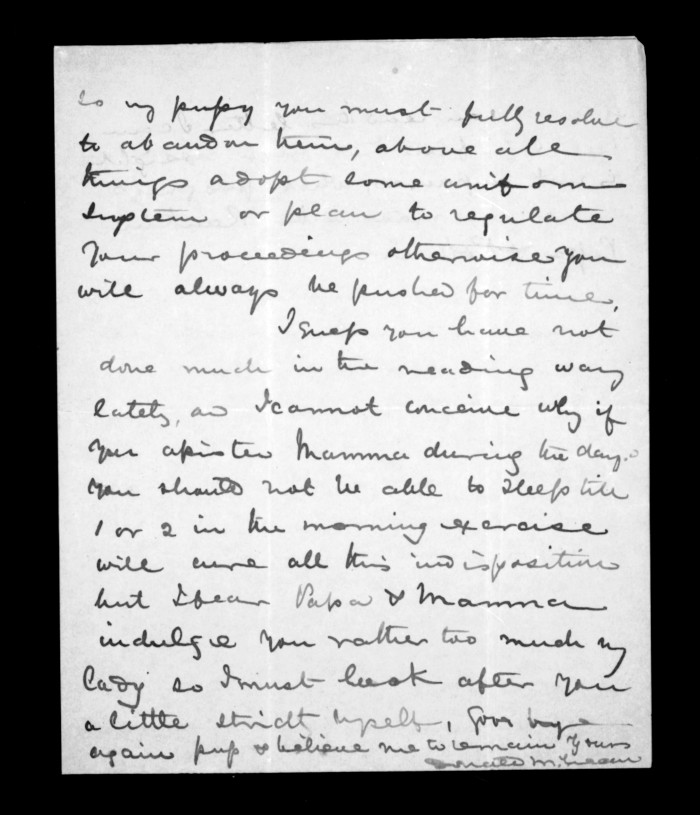 so my pupsy you must fully resolve
to abandon them, above all
things adopt some uniform
system or plan to regulate
your proceedings otherwise you
will always be pushed for time.
I guess you have not
done much in the reading way
lately, as I cannot conceive why if
you assisted Mamma during the day
you should not be able to sleep till
1 or 2 in the morning exercise
will cure all this indisposition
but I fear Papa & Mamma
indulge you rather too much my
lady so I must look after you
a little strictly myself, Good bye
again pup & believe me to remain Yours
Donald McLean